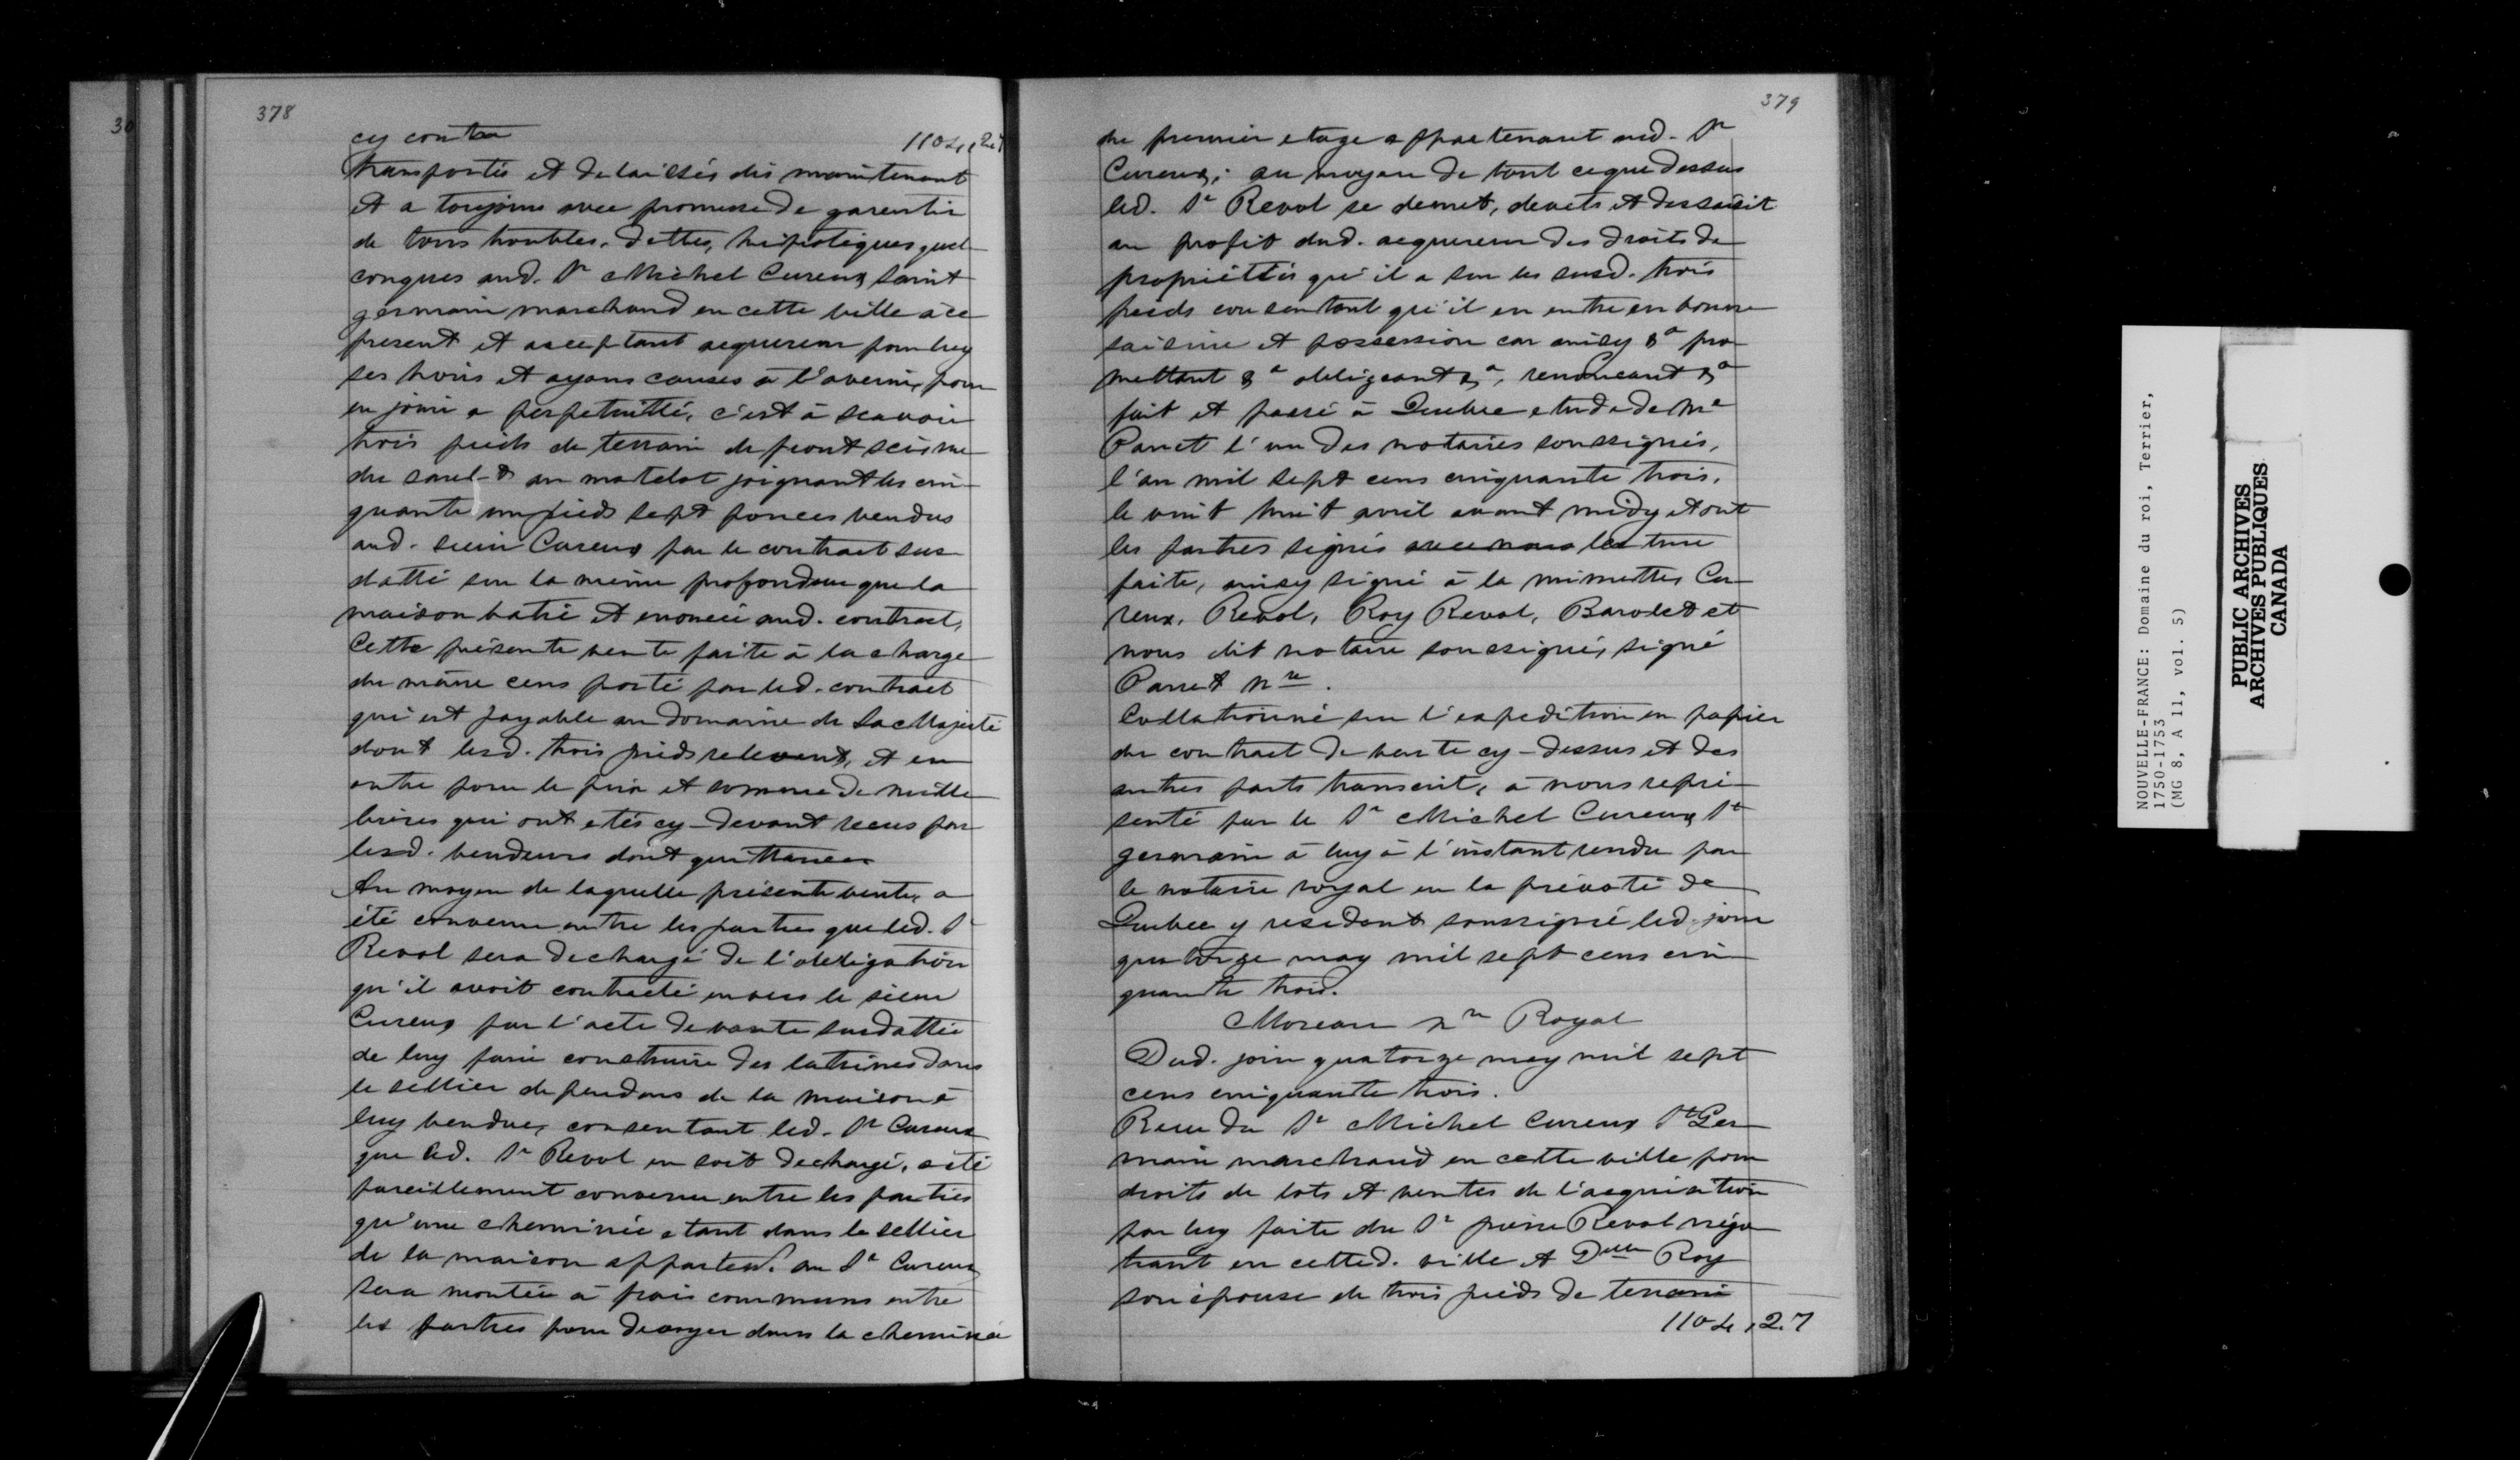 378
cy contre 110₶,2.7
transportés et delaissés dès maintenant
et a toujours avec promesse de garentir
de tous troubles, dettes, hipotèques quel-
conques aud. Sr Michel Cureux Saint
germain marchand en cette ville à ce
present et acceptant acquereur pour luy
ses hoirs et ayans causes à l'avenir, pour
en jouir a perpetuitté, c'est à scavoir
trois pieds de terrain de front scis rue
du sault au matelot joignant les cin-
quante un pieds sept pouces vendus
aud. sieur Cureux par le contract sus
datté sur la même profondeur que la
maison batie et enoncée aud. contract,
Cette présente vente faite à la charge
du même cens porté par led. contract
qui est payable au domaine de Sa Majesté
dont lesd. trois pieds relevent, et en
outre pour le prix et somme de mille
livres qui ont etés cy-devant recus par
lesd. vendeurs dont quittance
Au moyen de laquelle présente vente, a
été convenu entre les parties que led. Sr
Revol sera dechargé de l'obligation
qu'il avoit contracté envers le sieur
Cureux par l'acte de vante susdattée
de luy faire construire des latrines dans
le sellier dependans de la maison à
luy vendue, consentant led. Sr Cureux
que led. Sr Revol en soit dechargé, a été
pareillement convenu entre les parties
qu'une cheminée etant dans le sellier
de la maison apparten. au Sr Cureux
sera montée à frais communs entre
les parties pour devoyer dans la cheminée
379
du premier etage appartenant aud. Sr
Cureux; au moyen de tout ce que dessus
led. Sr Revol se demet, devets et dessaisit
au profit dud. acquereur des droits de
propriéttés qu'il a sur les susd. trois
pieds consentant qu'il en entre en bonne
saisine et possession car ainsy &a pro-
mettant &a obligeant &a, renoncant &a
fait et passé à Quebec etude de Me
Panet l'un des notaires soussignés,
l'an mil sept cens cinquante trois,
le vint huit avril avant midy et ont
les parties signés avec nous lecture
faite, ainsy signé à la minutte, Cu-
reux, Revol, Roy Revol, Barolet et
nous dit notaire soussigné, signé
Panet nre.
Collationné sur l'expedition en papier
du contract de vente cy-dessus et des
autres parts transcrit, à nous repré-
senté par le Sr Michel Cureux St
germain à luy à l'instant rendu par
le notaire royal en la prévoté de
Quebec y residant soussigné led. jour
quatorze may mil sept cens cin-
quante trois.
Moreau nre Royal
Dud. jour quatorze may mil sept
cens cinquante trois.
Recu du Sr Michel Cureux St Ger-
main marchand en cette ville pour
droits de lots et ventes de l'acquisition
par luy faite du Sr pierre Revol négo-
tiant en cetted. ville et Delle Roy
son épouse de trois pieds de terrain
110₶,2.7
NOUVELLE-FRANCE: Domaine du roi, Terrier,
1750-1753
(MG 8, A 11, vol. 5)
PUBLIC ARCHIVES
ARCHIVES PUBLIQUES
CANADA